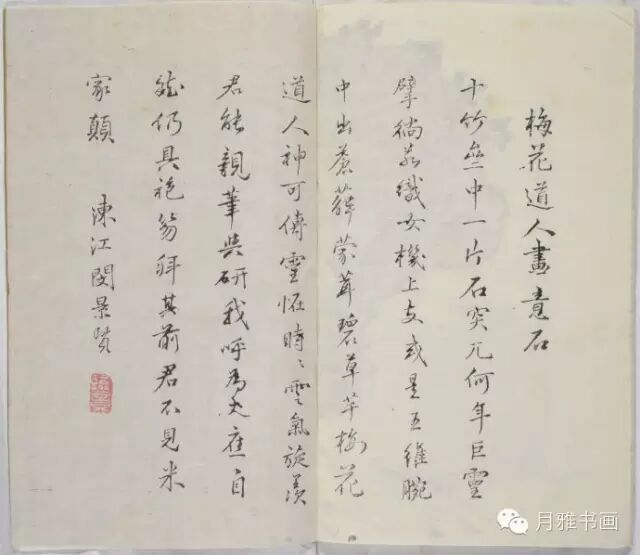 梅花道人畫意石
十竹齋中一片石突兀何年巨靈
擘徜若織女機上支或是王維腕
中出蒼蘚蒙茸碧草芊梅花
道人神可傳靈怪時〻雲氣旋羨
君能親筆與研我呼為丈應自
然仍具袍笏拜其前君不見米
家顛 涑江閔景賢
月雅书画